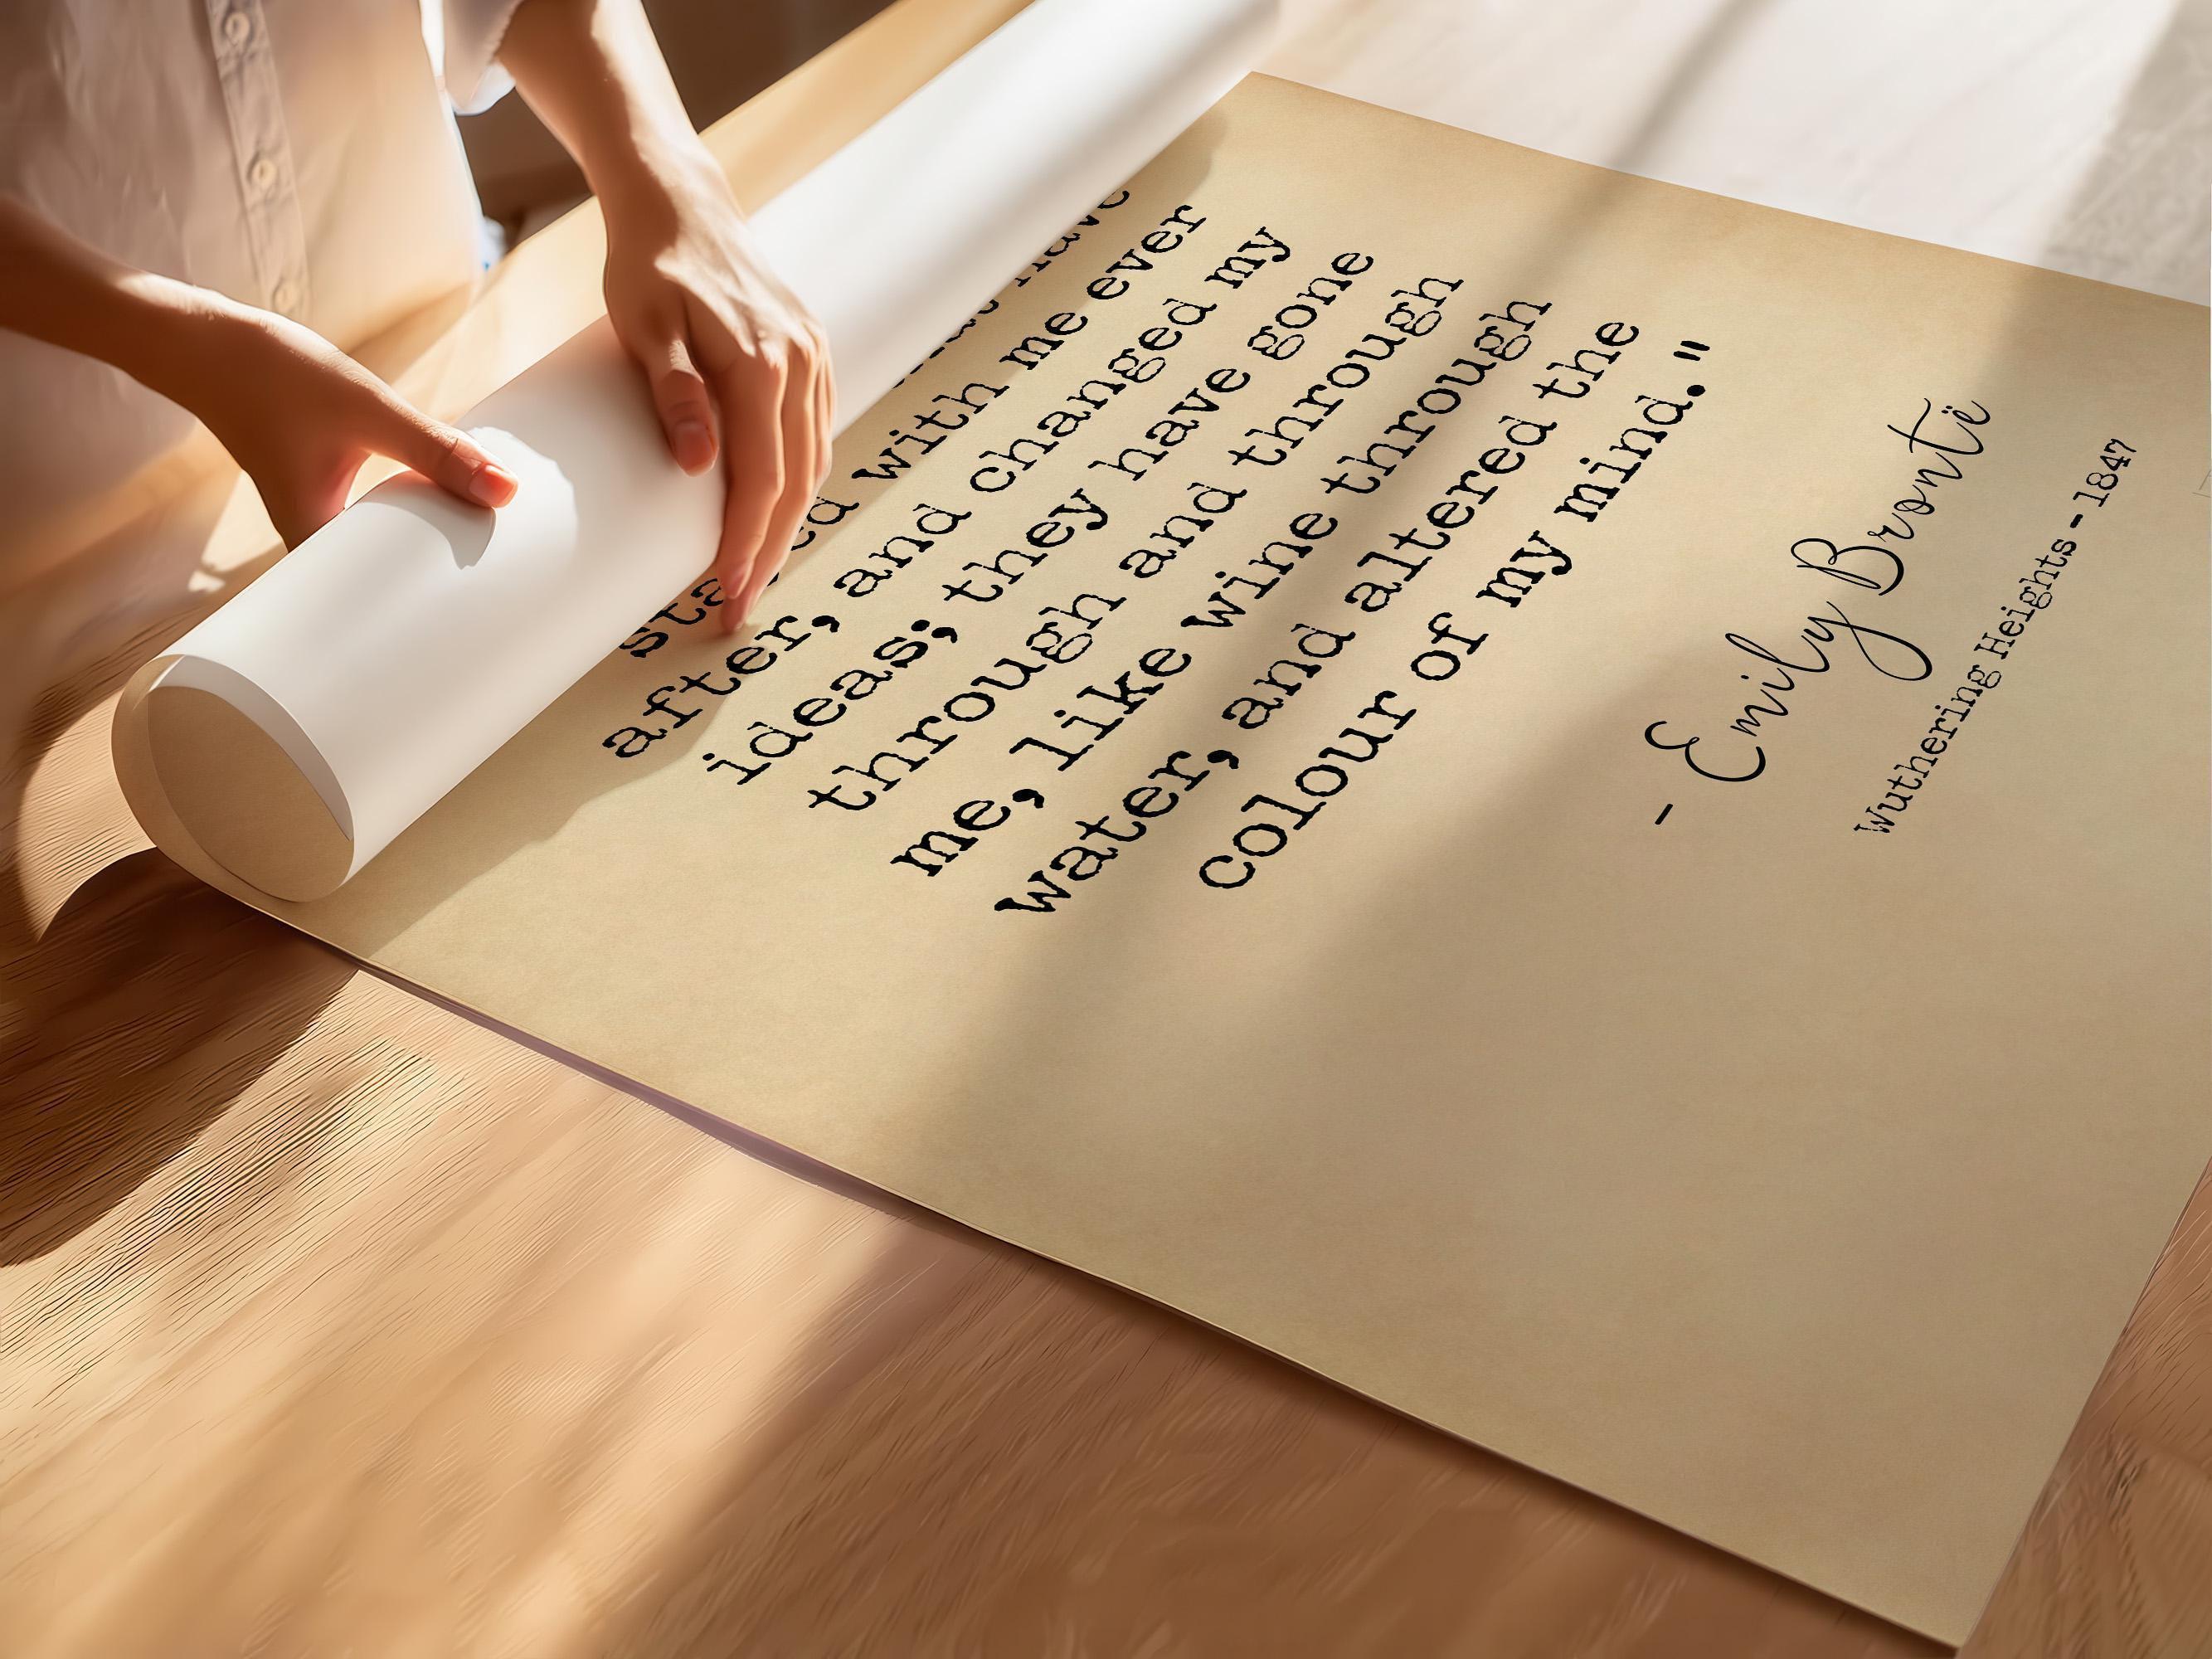 have
with me ever
after, and changed my
ideas; they have gone
through and through
me, like wine through
water, and altered the
colour of my mind."
- Emily Brontë
Wuthering Heights - 1847